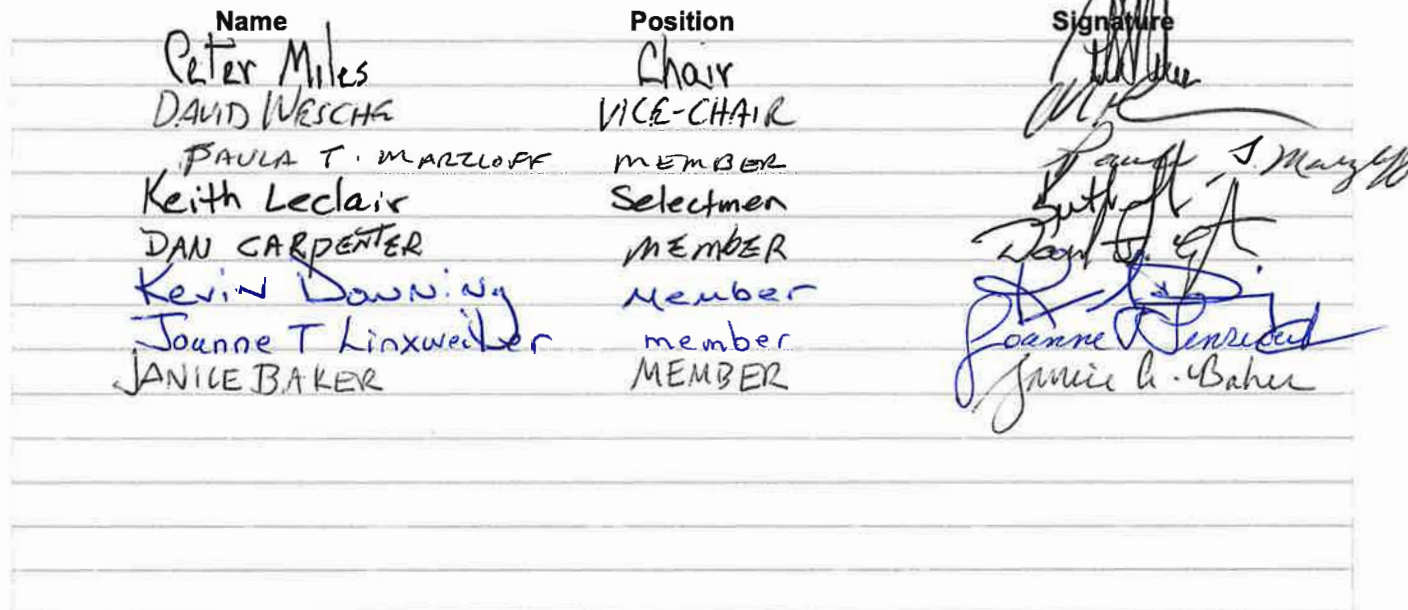 Name Position Signature
Peter Miles Chair
DAVID WESCHE VICE-CHAIR
PAULA T. MARZLOFF MEMBER Paula T. Marzloff
Keith Leclair Selectmen
DAN CARPENTER MEMBER
Kevin Downing Member
Joanne T Linxweiler member Joanne
JANICE BAKER MEMBER Janice A. Baker